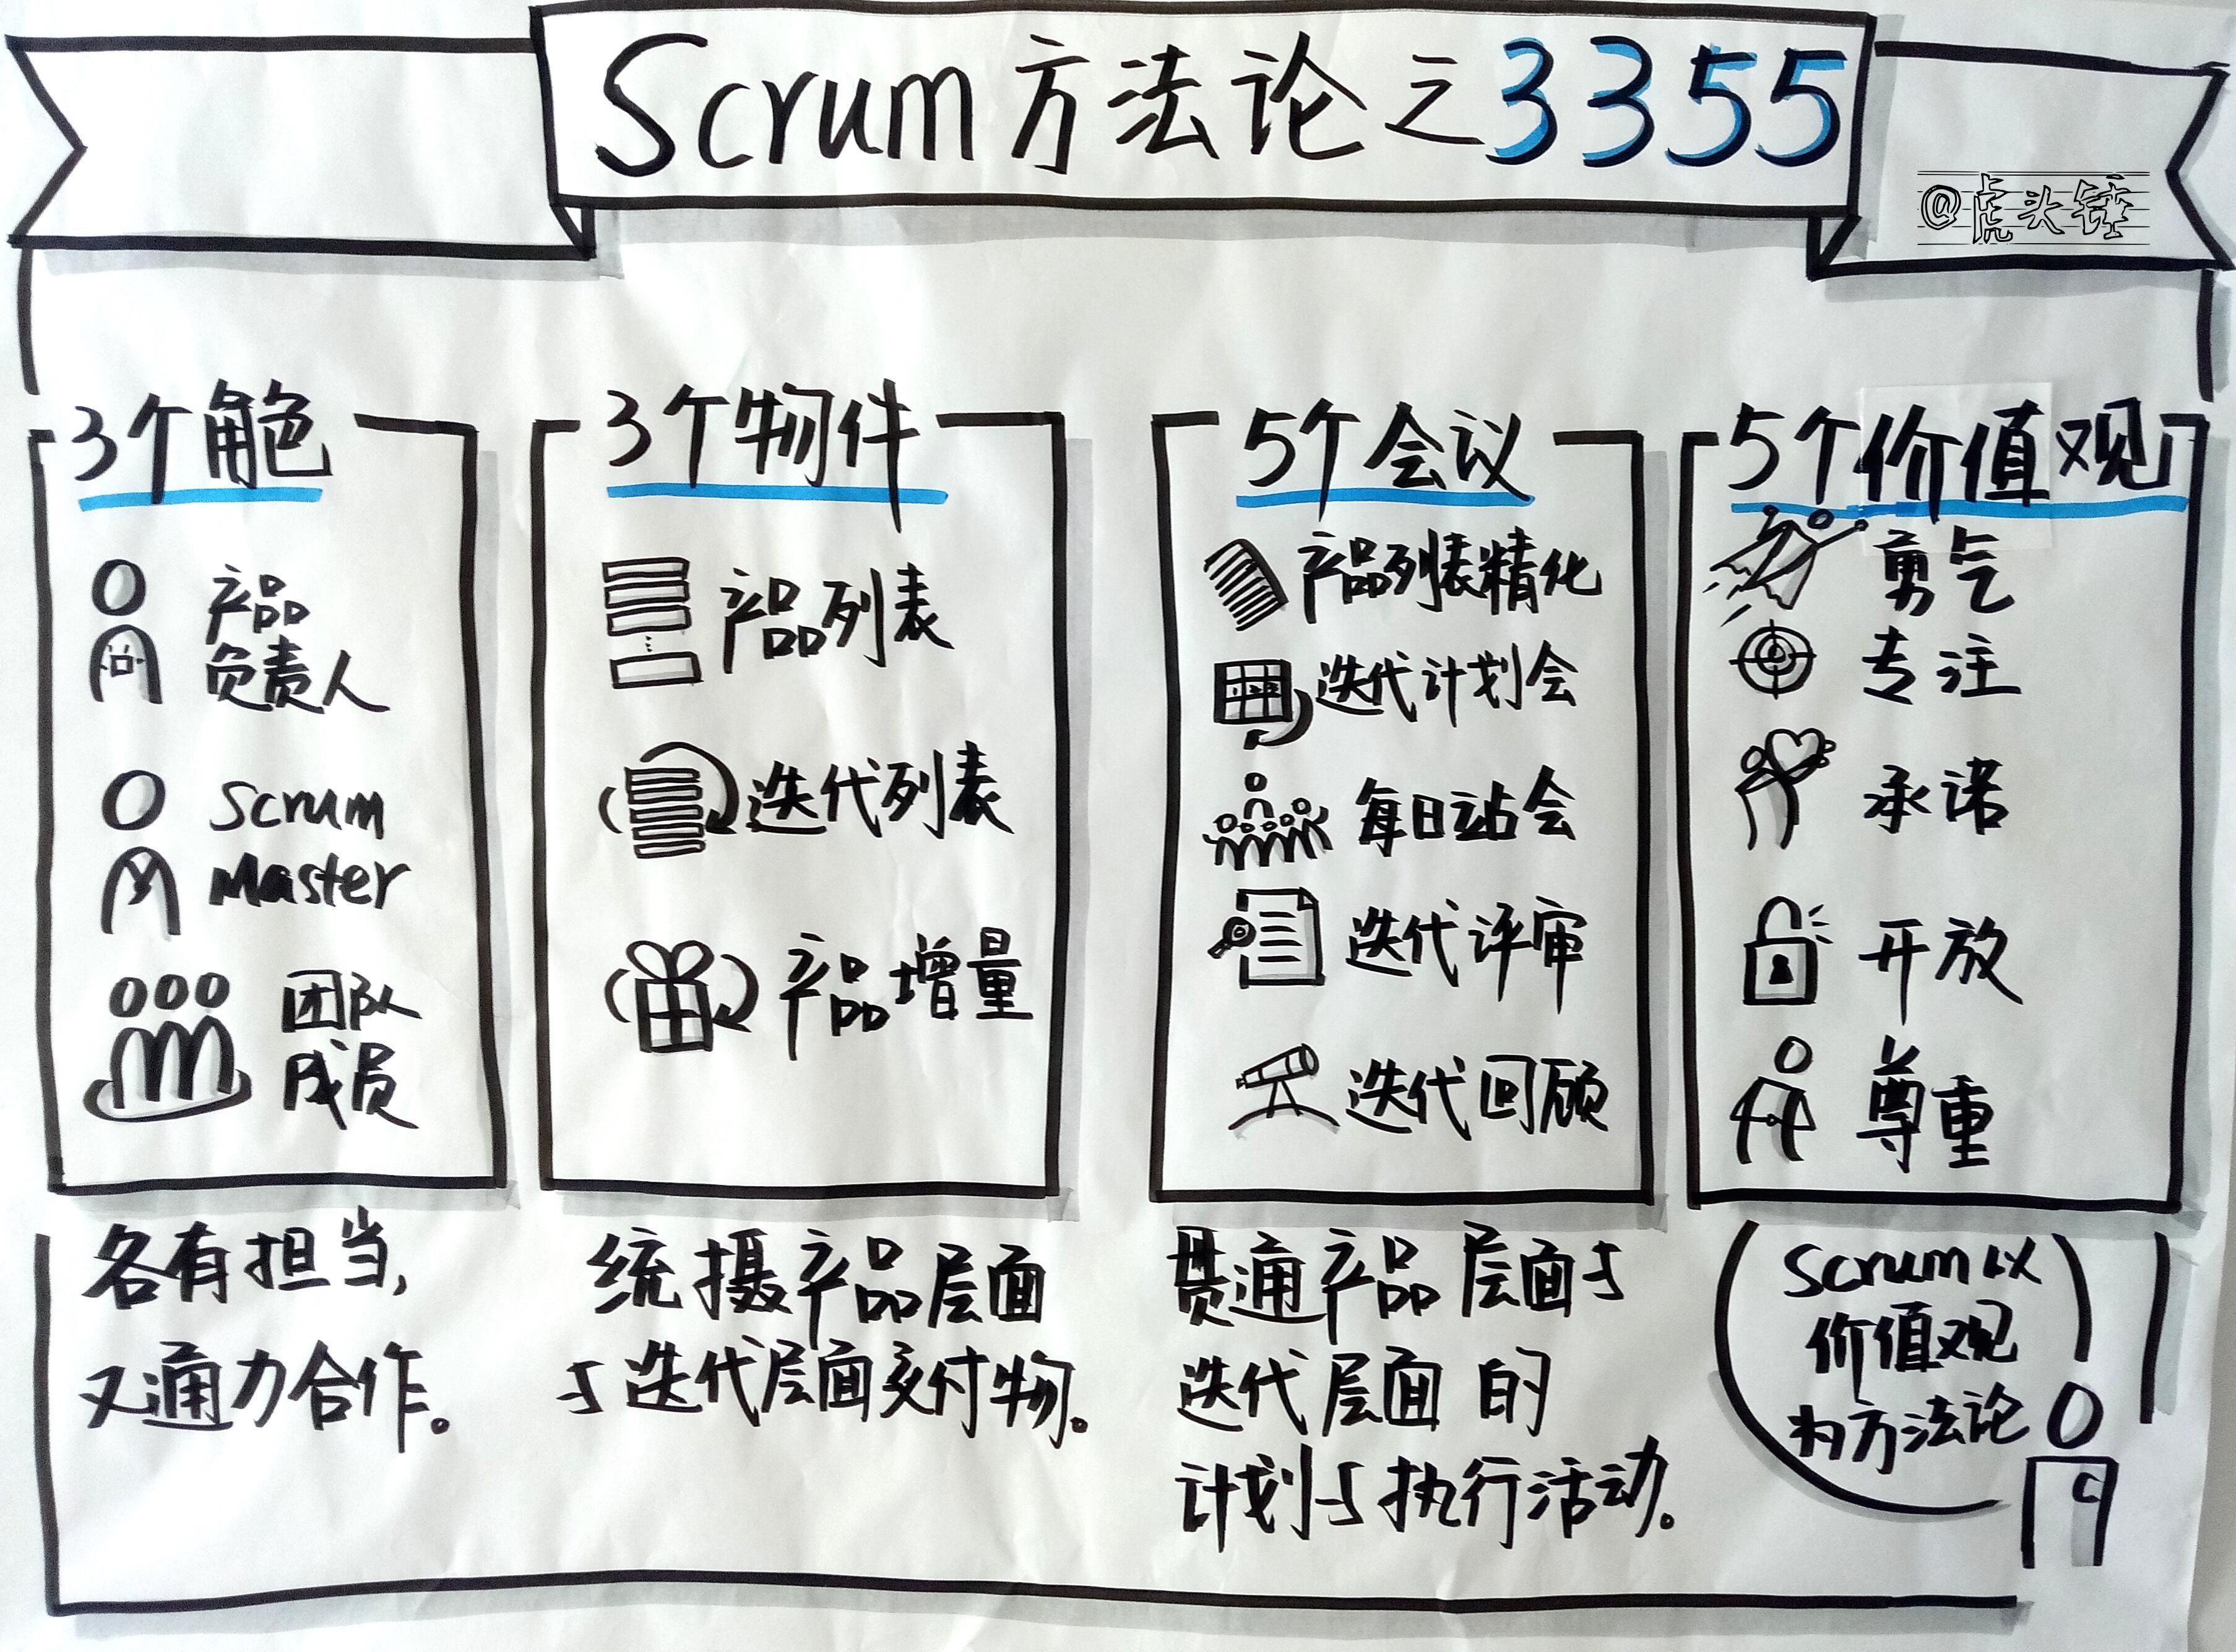 Scrum方法论之3355
@虎头锤
3个角色
产品
负责人
Scrum
Master
团队
成员
各有担当,
又通力合作。
3个物件
产品列表
迭代列表
产品增量
统摄产品层面
与迭代层面交付物。
5个会议
产品列表精化
迭代计划会
每日站会
迭代评审
迭代回顾
贯通产品层面与
迭代层面的
计划与执行活动。
5个价值观
勇气
专注
承诺
开放
尊重
Scrum以
价值观
为方法论